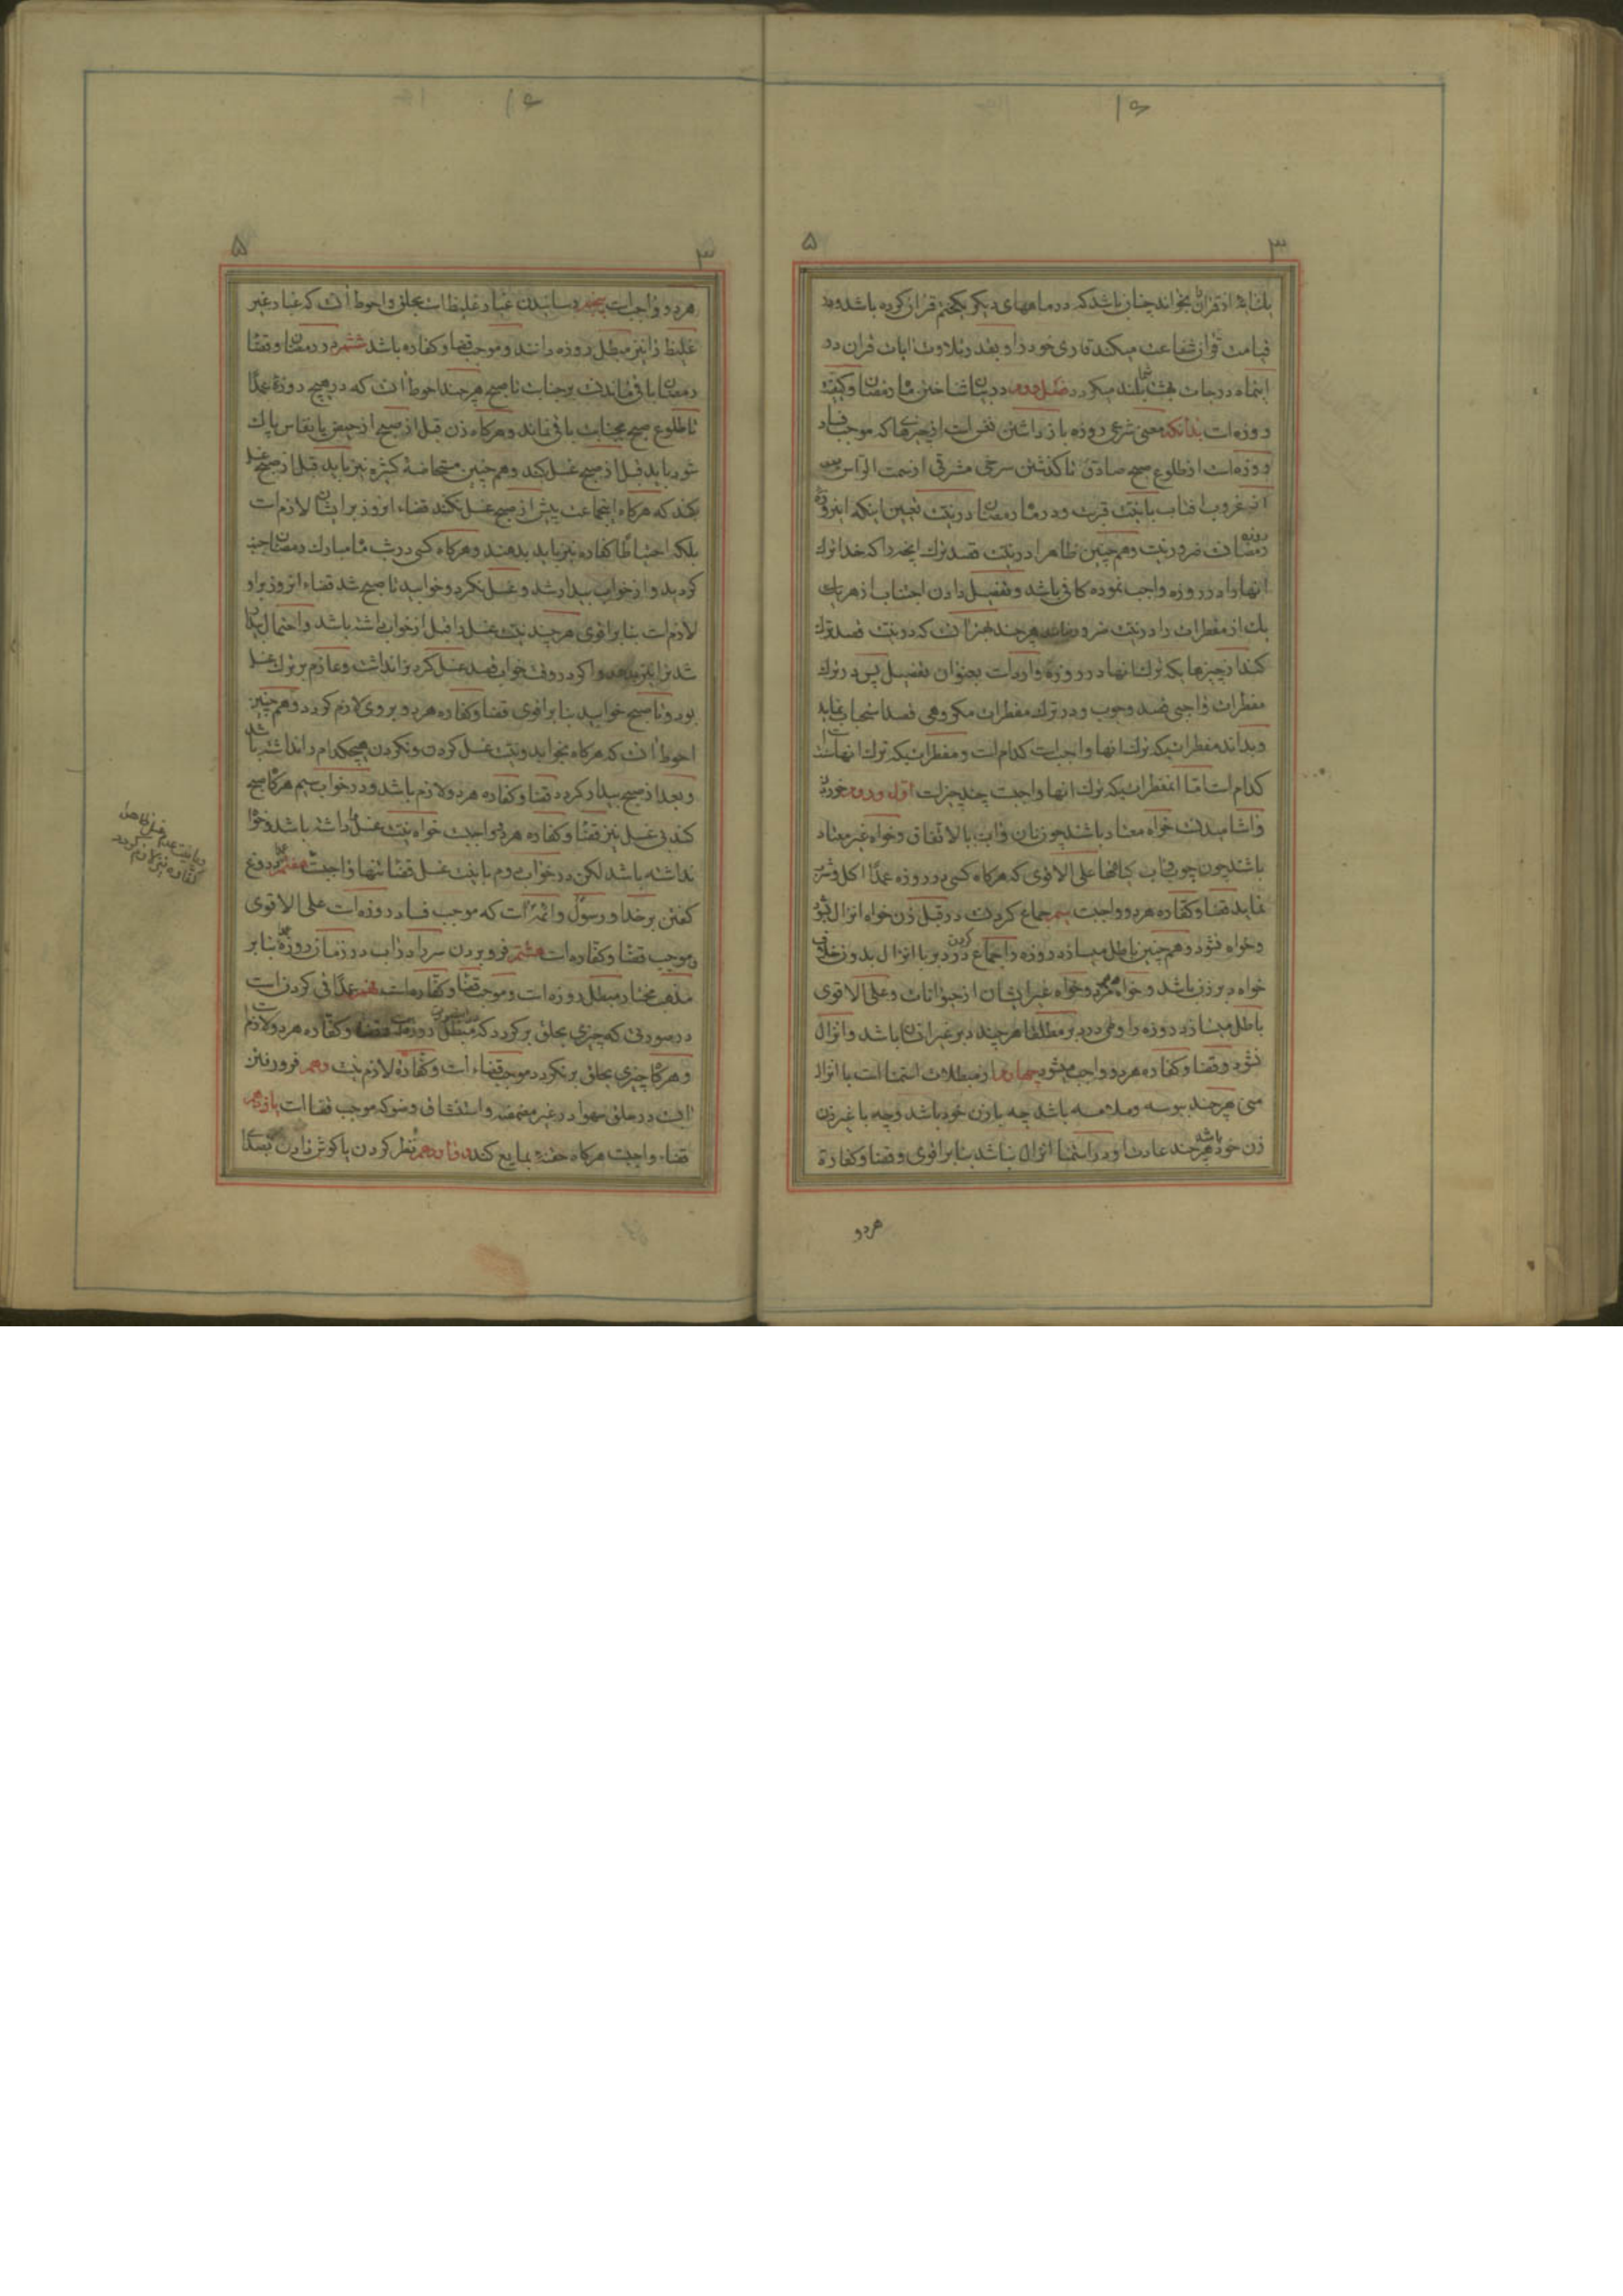 یک آیه از قرآن بخواند چنان باشد که در ماههای دیگر یک ختم قرآن کرده باشد و
قیامت قرآن شفاعت میکند قاری خود را و بقدر تلاوت آیات قرآن در
اینماه درجات بهشت بلند میگردد فصل دوم در بیان شناختن ماه رمضان و کیفیت
روزه است بدانکه معنی شرعی روزه باز داشتن نفس است از چیزهائی که موجب فساد
روزه است از طلوع صبح صادق تا گذشتن سرخی مشرقی از سمت الرأس
غروب آفتاب با نیت قربت و در ماه رمضان در نیت تعیین اینکه این روزه
رمضان ضرور نیست و همچنین ظاهرا در نیت قصد ترک آنچه را که خدا ترک
آنها را در روزه واجب نموده کافی باشد و تفصیل دادن اجتناب از هر یک
یک از مفطرات را در نیت ضرور هر چند بهتر آنست که در نیت قصد ترک
کند از چیزها یکه ترک آنها در روزه وارد است بعنوان تفصیل پس در ترک
مفطرات واجبی قصد وجوب و در ترک مفطرات مکروهی قصد استحباب نماید
و بداند مفطراتیکه ترک آنها واجب است کدام است و مفطراتیکه ترک آنها سنت است
کدام است اما آنمفطراتیکه ترک آنها واجبست چند چیز است اول و دوم خوردن
و آشامیدنست خواه معتاد باشند چون نان و آب بالاتفاق و خواه غیر معتاد
باشند چون چوب و آب گیاهها علی الاقوی که هرگاه کسی در روزه عمدا اکل و شرب
نماید قضا و کفاره هر دو واجبست سیم جماع کردنست در قبل زن خواه انزال بشود
و خواه نشود و همچنین باطل میسازد روزه را جماع کردن در دبر با انزال بدون خلاف
خواه دبر زن باشد و خواه مرد و خواه غیر ایشان از حیوانات و علی الاقوی
باطل میسازد روزه را وطی در دبر مطلقا هر چند دبر غیر انسان باشد و انزال
نشود و قضا و کفاره هر دو واجب میشود چهارم از مبطلات استمنا است با انزال
منی هر چند ببوسه و ملامسه باشد چه با زن خود باشد و چه با غیر زن
زن خود باشد هر چند عادت او در استمنا انزال نباشد بنا بر اقوی و قضا و کفاره
هر دو
هر دو واجب است پنجم رسانیدن غبار غلیظ است بحلق و احوط آنست که غبار غیر
غلیظ را نیز مبطل روزه دانند و موجب قضا و کفاره باشد ششم در رمضان و قضا
رمضان باقی ماندنست بر جنابت تا صبح هر چند احوط آنست که در هیچ روزه عمدا
تا طلوع صبح بجنابت باقی نماند و هرگاه زن قبل از صبح از حیض یا نفاس پاک
شود باید قبل از صبح غسل کند و همچنین مستحاضه کثیره نیز باید قبل از صبح غسل
بکند که هرگاه اینجماعت پیش از صبح غسل نکنند قضاء آنروز بر ایشان لازم است
بلکه احتیاطا کفاره نیز باید بدهند و هرگاه کسی در شب ماه مبارک رمضان جنب
گردید و از خواب بیدار شد و غسل نکرد و خوابید تا صبح شد قضاء آنروز بر او
لازم است بنا بر اقوی هر چند نیت غسل را قبل از خواب داشته باشد و احتمال بیدار
شدن را و اگر در وقت خواب قصد غسل کردن را نداشت و عازم بر ترک غسل
بود و تا صبح خوابید بنا بر اقوی قضا و کفاره هر دو بر وی لازم گردد و همچنین
احوط آنست که هرگاه بخوابد و نیت غسل کردن و نکردن هیچکدام را نداشته باشد
و بعد از صبح بیدار گردد قضا و کفاره هر دو لازم باشد و در خواب سیم هرگاه صبح
کند بی غسل نیز قضا و کفاره هر دو واجبست خواه نیت غسل را داشته باشد و خواه
نداشته باشد لکن در خواب دوم با نیت غسل قضا تنها واجبست هفتم دروغ
گفتن بر خدا و رسول و ائمه است که موجب فساد روزه است علی الاقوی
و موجب قضا و کفاره است هشتم فرو بردن سر در آب در زمان روزه بنا بر
مذهب مختار مبطل روزه است و موجب قضا و کفاره است نهم عمدا قی کردنست
در صورتی که چیزی بحلق برگردد که مبطل روزه قضا و کفاره هر دو لازم است
و هرگاه چیزی بحلق برنگردد موجب قضاء است و کفاره لازم نیست دهم فرو رفتن
آبست در حلق سهوا در غیر مضمضه و استنشاق وضو که موجب قضا است یازدهم
قضاء واجبست هرگاه حقنه بمایع کند دوازدهم نظر کردن یا گوش دادن قصدا
کفاره نیز لازم گردد
۳
۵
۳
۵